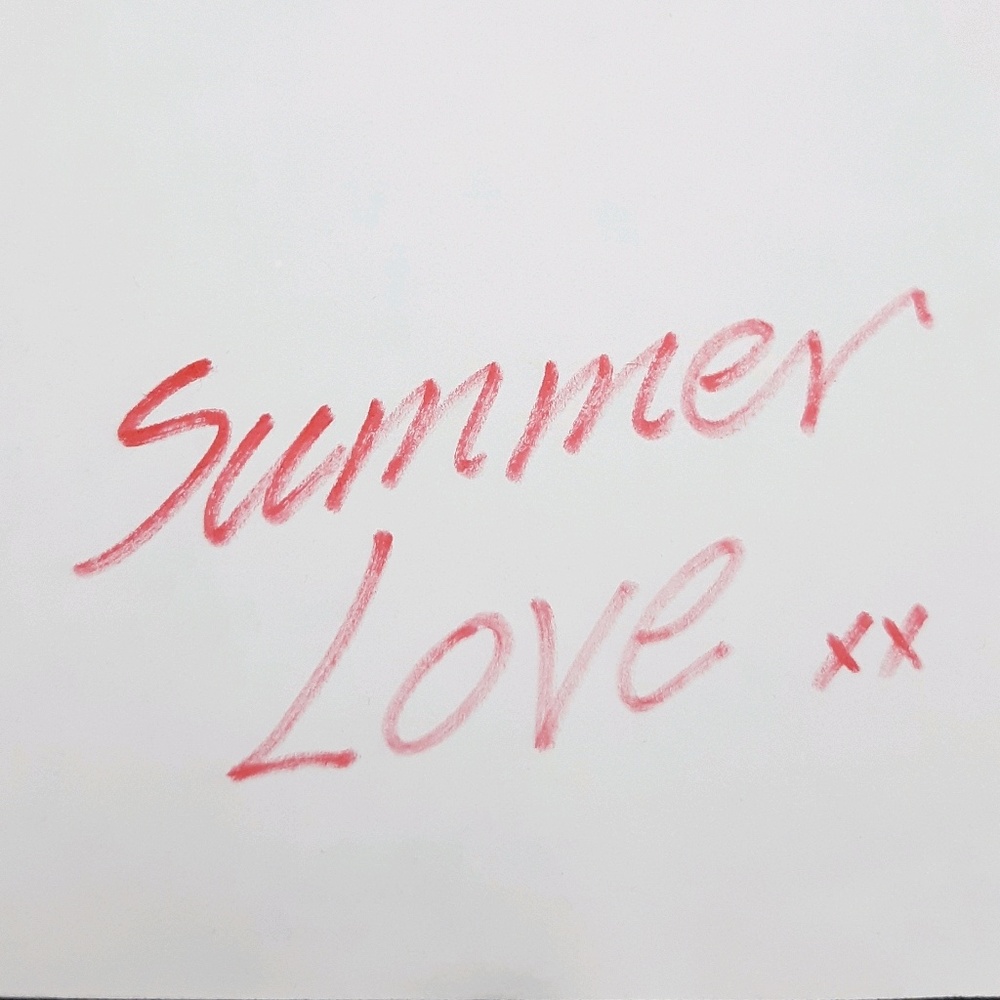 Summer
Love xx